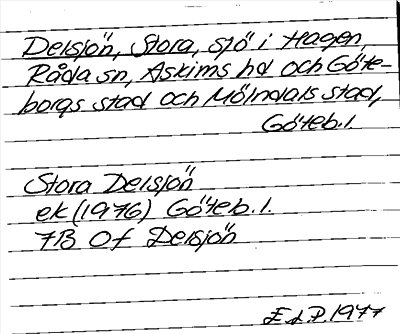 Delsjön, Stora, sjö i Hagen,
Råda sn, Askims hd och Göte-
borgs stad och Mölndals stad,
Göteb. l.
Stora Delsjön
ek (1976) Göteb. l.
7B 0f Delsjön
E.d.P. 1977